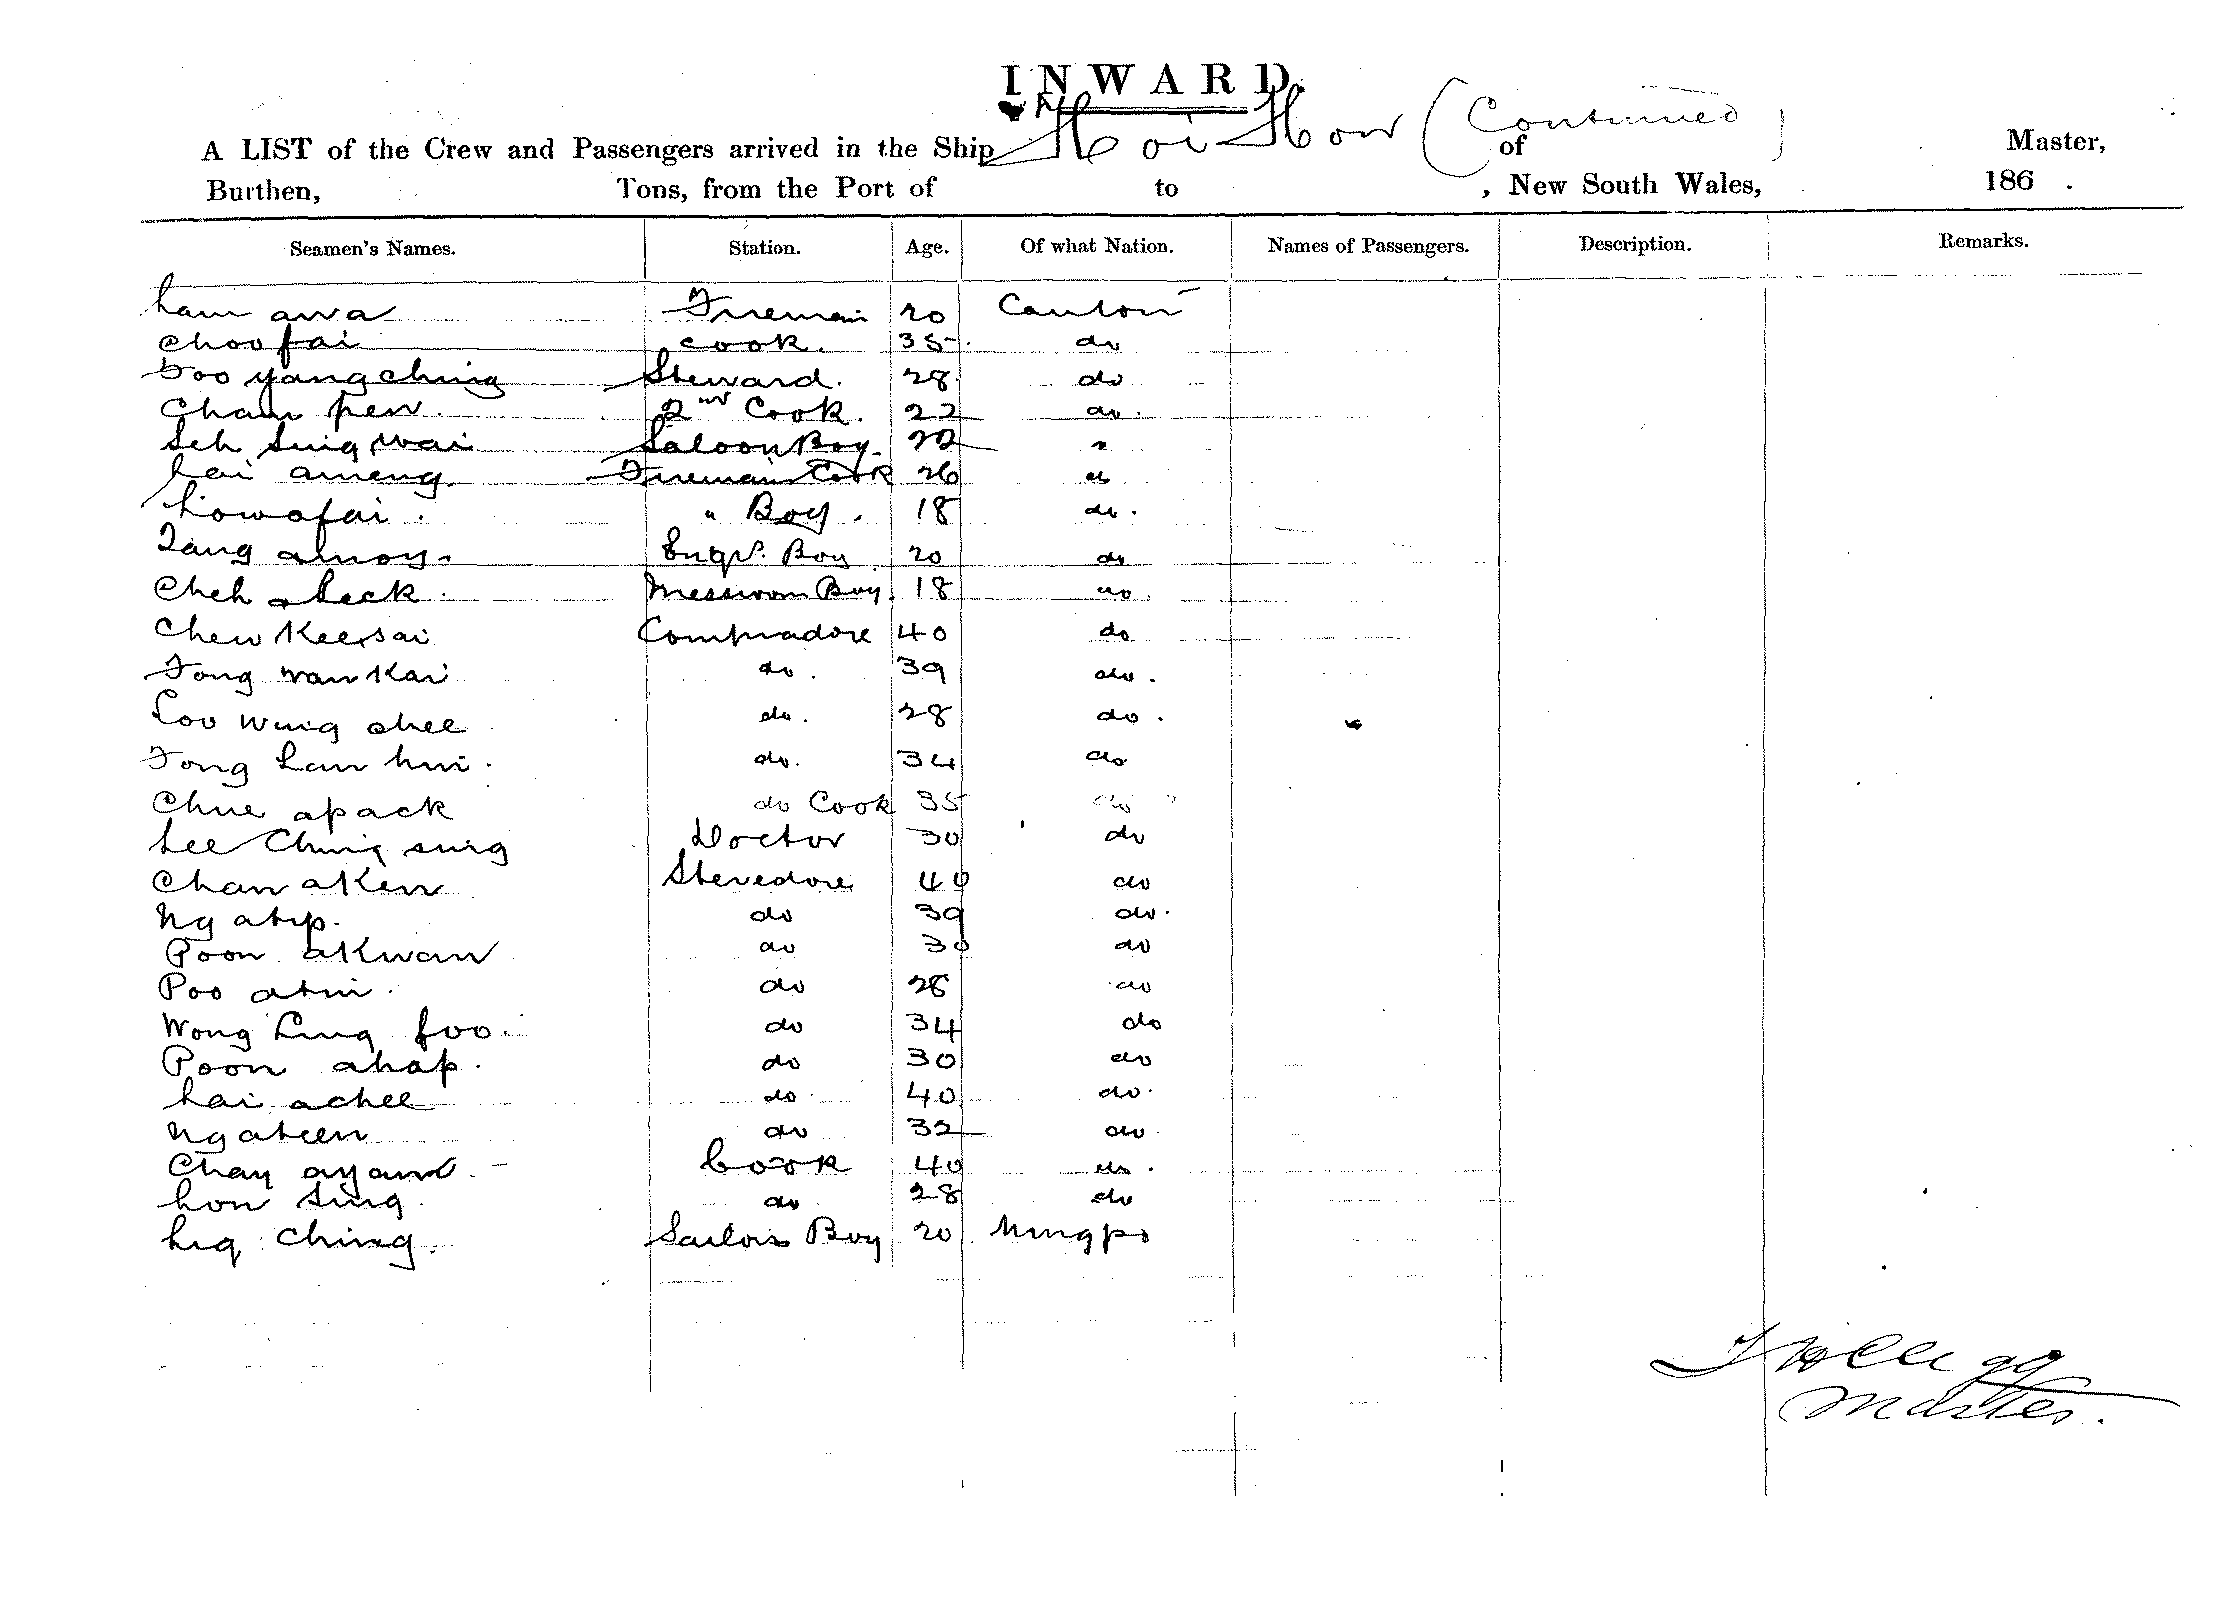 INWARD.
A LIST of the Crew and Passengers arrived in the Ship Hoi How (Continued) of Master,
Burthen, Tons, from the Port of to , New South Wales, 186 .
Seamen's Names. Station. Age. Of what Nation. Names of Passengers. Description. Remarks.
Lam awa Fireman 20 Canton
Choo fai Cook. 35 do
Foo yang ching Steward. 28 do
Cham pew. 2nd Cook. 22 do.
Seh Sing wai Saloon Boy. 22 "
Lai ameng. Fireman's Cook 26 do
Low a fai. " Boy. 18 do.
Tang amoy. Engrs. Boy 20 do
Cheh a Seck. Messroom Boy. 18 do.
Chew Kee sai Compradore 40 do
Fong wan Kai do. 39 do.
Loo Wing chee do. 28 do.
Fong Lau hui. do. 34 do
Chue apack do Cook 35 do
Lee Ching sing Doctor 30 do
Chan aKew Stevedore 40 do
Ng atip. do 39 do.
Poon aKwan do 30 do
Poo atin. do 28 do
Wong Ling foo. do 34 do
Poon ahap. do 30 do
Lai achee do 40 do.
Ng ateen do 32 do
Chay ayand. Cook 40 do.
Lon Sing. do 28 do
Ching. Sailors Boy 20 Ningpo
Master.